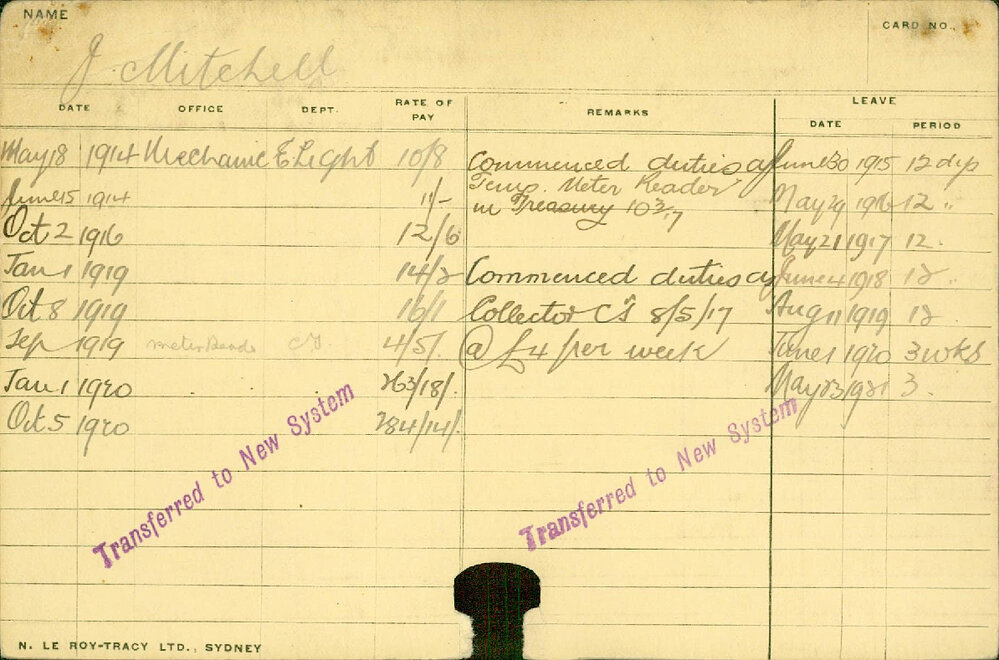 NAME
CARD NO.
J. Mitchell
DATE OFFICE DEPT. RATE OF PAY REMARKS LEAVE
DATE PERIOD
May 18 1914 Mechanic E Light 10/8 Commenced duties as June 30 1915 12 dys
June 15 1914 11/- Temp. Meter Reader May 29 1916 12 "
in Treasury 10 3/17
Oct 2 1916 12/6 May 21 1917 12 "
Jan 1 1919 14/2 Commenced duties as June 4 1918 12 "
Oct 8 1919 16/1 Collector CT 8/5/17 Aug 11 1919 12
Sep 1919 CT 4/5/- @ £4 per week June 1 1920 3 wks
Jan 1 1920 263/18/- May 23 1921 3 "
Oct 5 1920 284/14/-
Transferred to New System
Transferred to New System
N. LE ROY-TRACY LTD., SYDNEY